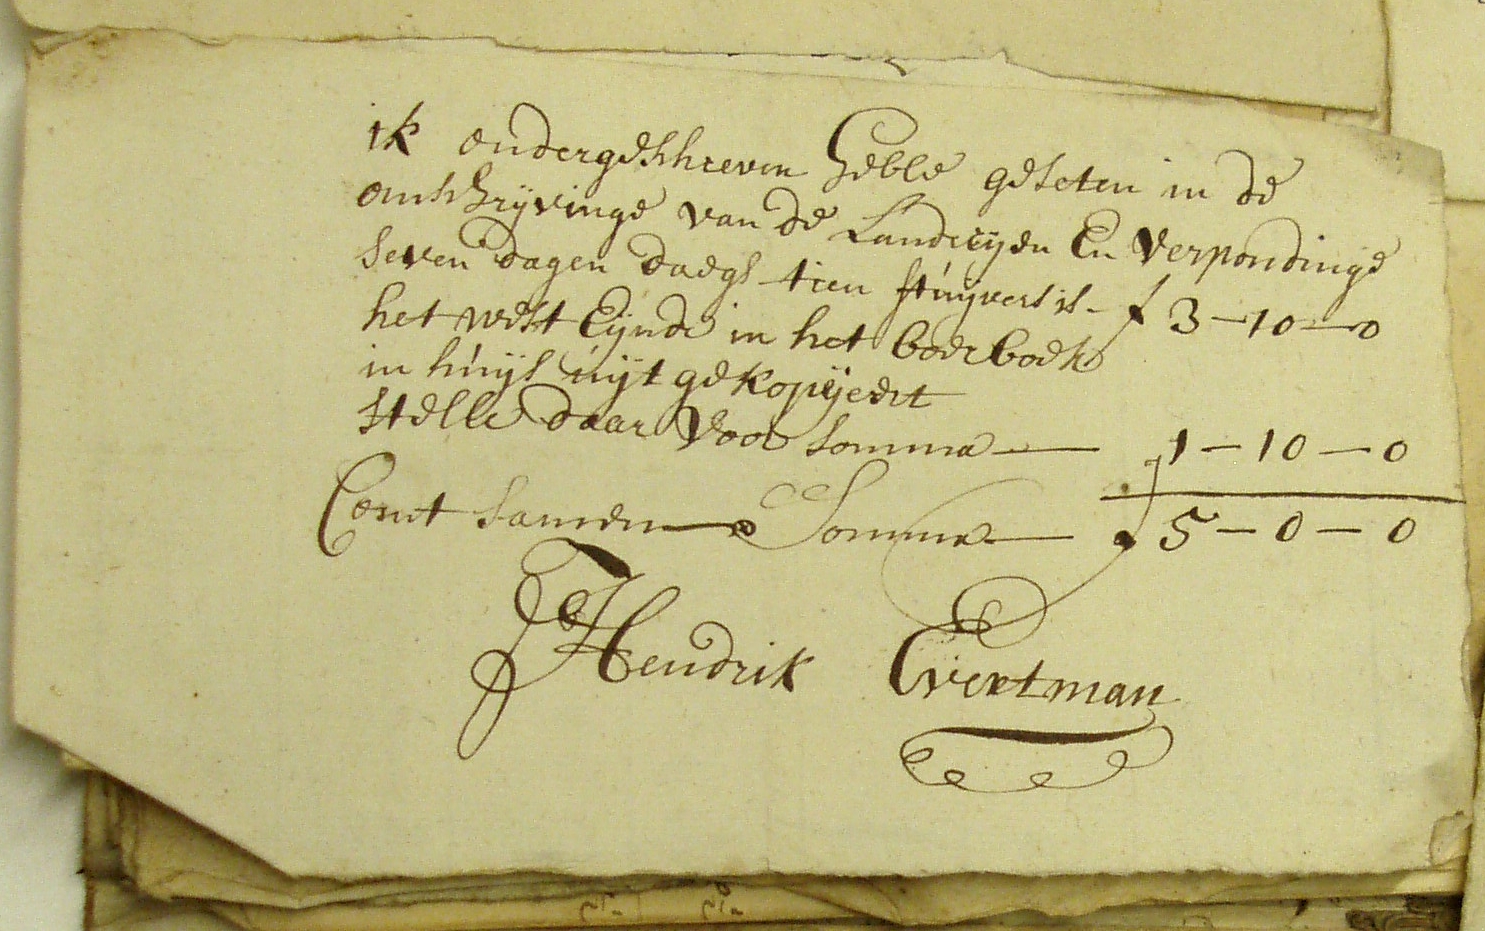 ik ondergeschreven Hebbe geseten in de
omschrijvinge van de Landerijen En Verpondinge
seven dagen daegs tien stuijvers is - f 3-10-0
het west Eijnde in het boerboek
in huijs uijt gekopijeert
stelle daar Voor somma — 1-10-0
Comt samen Somma — f 5-0-0
Hendrik Evertman